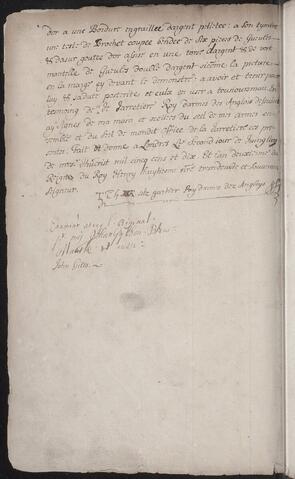 d'or a une Bordure engraillee d'argent pelletee a son tymbre
une teste de Brochet coupee bendee de Six pieces de Gueulles
& d'azur goutee d'or assise en une torse d'argent & de vert
mantelle de Gueulls double d'argent sicome la picture
en la marge cy devant le demonstre a avoir et tenir pour
luy & sadite posterite et eulx en user a tousiourmais En
temoing de ce Je Jarretier Roy d'armes des Anglois dessusnomme
ay Signes de ma main et scelles du seel de mes armes en-
semble et du seel de mondit office de la Jarretiere ces pre-
sentes. Fait et donne a Londres Le Second jour de Juing l'an
de nre Seigneur mil cinq cens et dix Et l'an deuxieme du
Reigne du Roy Henry Huytieme nre tresredoubte et Souverain
Seigneur.
Th alt garter Roy darmes des Angloys
Original
par moy
John